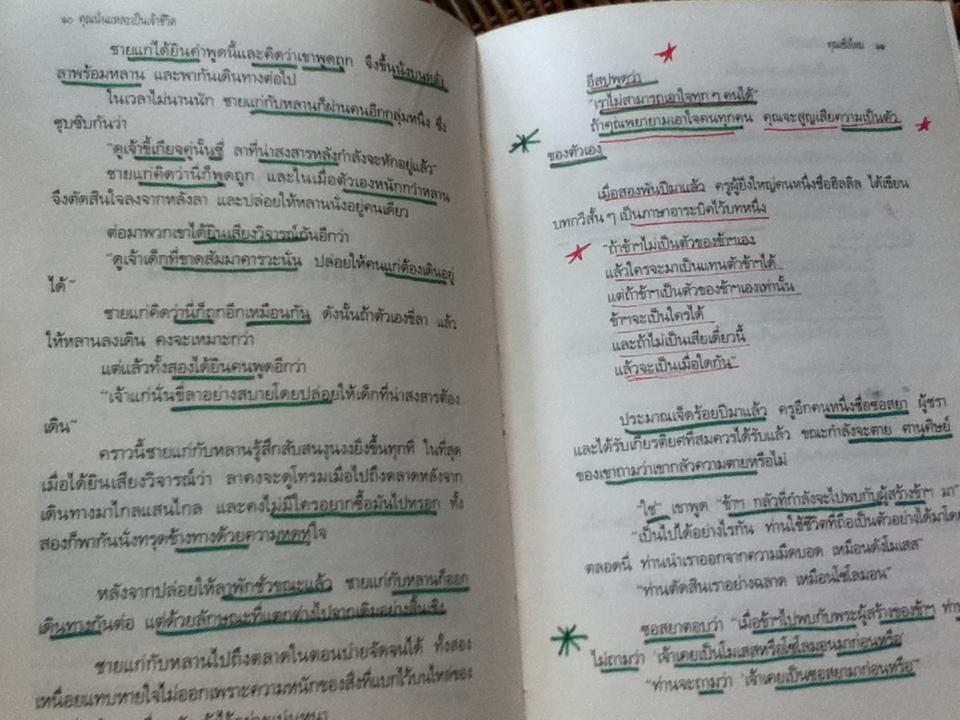 ๑๐ คุณนั่นแหละเป็นเจ้าชีวิต
ชายแก่ได้ยินคำพูดนี้และคิดว่าเขาพูดถูก จึงขึ้นนั่งบนหลัง
ลาพร้อมหลาน และพากันเดินทางต่อไป
ในเวลาไม่นานนัก ชายแก่กับหลานก็ผ่านคนอีกกลุ่มหนึ่ง ซึ่ง
ซุบซิบกันว่า
"ดูเจ้าขี้เกียจคู่นั้นซี่ ลาที่น่าสงสารหลังกำลังจะหักอยู่แล้ว"
ชายแก่คิดว่านี่ก็พูดถูก และในเมื่อตัวเองหนักกว่าหลาน
จึงตัดสินใจลงจากหลังลา และปล่อยให้หลานนั่งอยู่คนเดียว
ต่อมาพวกเขาได้ยินเสียงวิจารณ์กันอีกว่า
"ดูเจ้าเด็กที่ขาดสัมมาคารวะนั่น ปล่อยให้คนแก่ต้องเดินอยู่
ได้"
ชายแก่คิดว่านี่ก็ถูกอีกเหมือนกัน ดังนั้นถ้าตัวเองขี่ลา แล้ว
ให้หลานลงเดิน คงจะเหมาะกว่า
แต่แล้วทั้งสองได้ยินคนพูดอีกว่า
"เจ้าแก่นั่นขี่ลาอย่างสบายโดยปล่อยให้เด็กที่น่าสงสารต้อง
เดิน"
คราวนี้ชายแก่กับหลานรู้สึกสับสนงุนงงยิ่งขึ้นทุกที ในที่สุด
เมื่อได้ยินเสียงวิจารณ์ว่า ลาคงจะดูโทรมเมื่อไปถึงตลาดหลังจาก
เดินทางมาไกลแสนไกล และคงไม่มีใครอยากซื้อมันไปหรอก ทั้ง
สองก็พากันนั่งทรุดข้างทางด้วยความหดหู่ใจ
หลังจากปล่อยให้ลาพักชั่วขณะแล้ว ชายแก่กับหลานก็ออก
เดินทางกันต่อ แต่ด้วยลักษณะที่แตกต่างไปจากเดิมอย่างสิ้นเชิง
ชายแก่กับหลานไปถึงตลาดในตอนบ่ายจัดจนได้ ทั้งสอง
เหนื่อยแทบหายใจไม่ออกเพราะความหนักของสิ่งที่แบกไว้บนไหล่ของ
คุณเชื่อไหม ๑๑
อีสปพูดว่า
"เราไม่สามารถเอาใจทุก ๆ คนได้"
ถ้าคุณพยายามเอาใจคนทุกคน คุณจะสูญเสียความเป็นตัว
ของตัวเอง
เมื่อสองพันปีมาแล้ว ครูผู้ยิ่งใหญ่คนหนึ่งชื่อฮิลลิล ได้เขียน
บทกวีสั้น ๆ เป็นภาษาอาระบิคไว้บทหนึ่ง
"ถ้าข้าฯไม่เป็นตัวของข้าฯเอง
แล้วใครจะมาเป็นแทนตัวข้าฯได้
แต่ถ้าข้าฯเป็นตัวของข้าฯเองเท่านั้น
ข้าฯจะเป็นใครได้
และถ้าไม่เป็นเสียเดี๋ยวนี้
แล้วจะเป็นเมื่อใดกัน"
ประมาณเจ็ดร้อยปีมาแล้ว ครูอีกคนหนึ่งชื่อซอสยา ผู้ชรา
และได้รับเกียรติยศที่สมควรได้รับแล้ว ขณะกำลังจะตาย ศานุศิษย์
ของเขาถามว่าเขากลัวความตายหรือไม่
"ใช่" เขาพูด "ข้าฯ กลัวที่กำลังจะไปพบกับผู้สร้างข้าฯ มา"
"เป็นไปได้อย่างไรกัน ท่านใช้ชีวิตที่ถือเป็นตัวอย่างได้มาโดย
ตลอดนี่ ท่านนำเราออกจากความมืดบอด เหมือนดังโมเสส"
"ท่านตัดสินเราอย่างฉลาด เหมือนโซโลมอน"
ซอสยาตอบว่า "เมื่อข้าฯไปพบกับพระผู้สร้างของข้าฯ
ไม่ถามว่า 'เจ้าเคยเป็นโมเสสหรือโซโลมอนมาก่อนหรือ'
"ท่านจะถามว่า 'เจ้าเคยเป็นซอสยามาก่อนหรือ'"